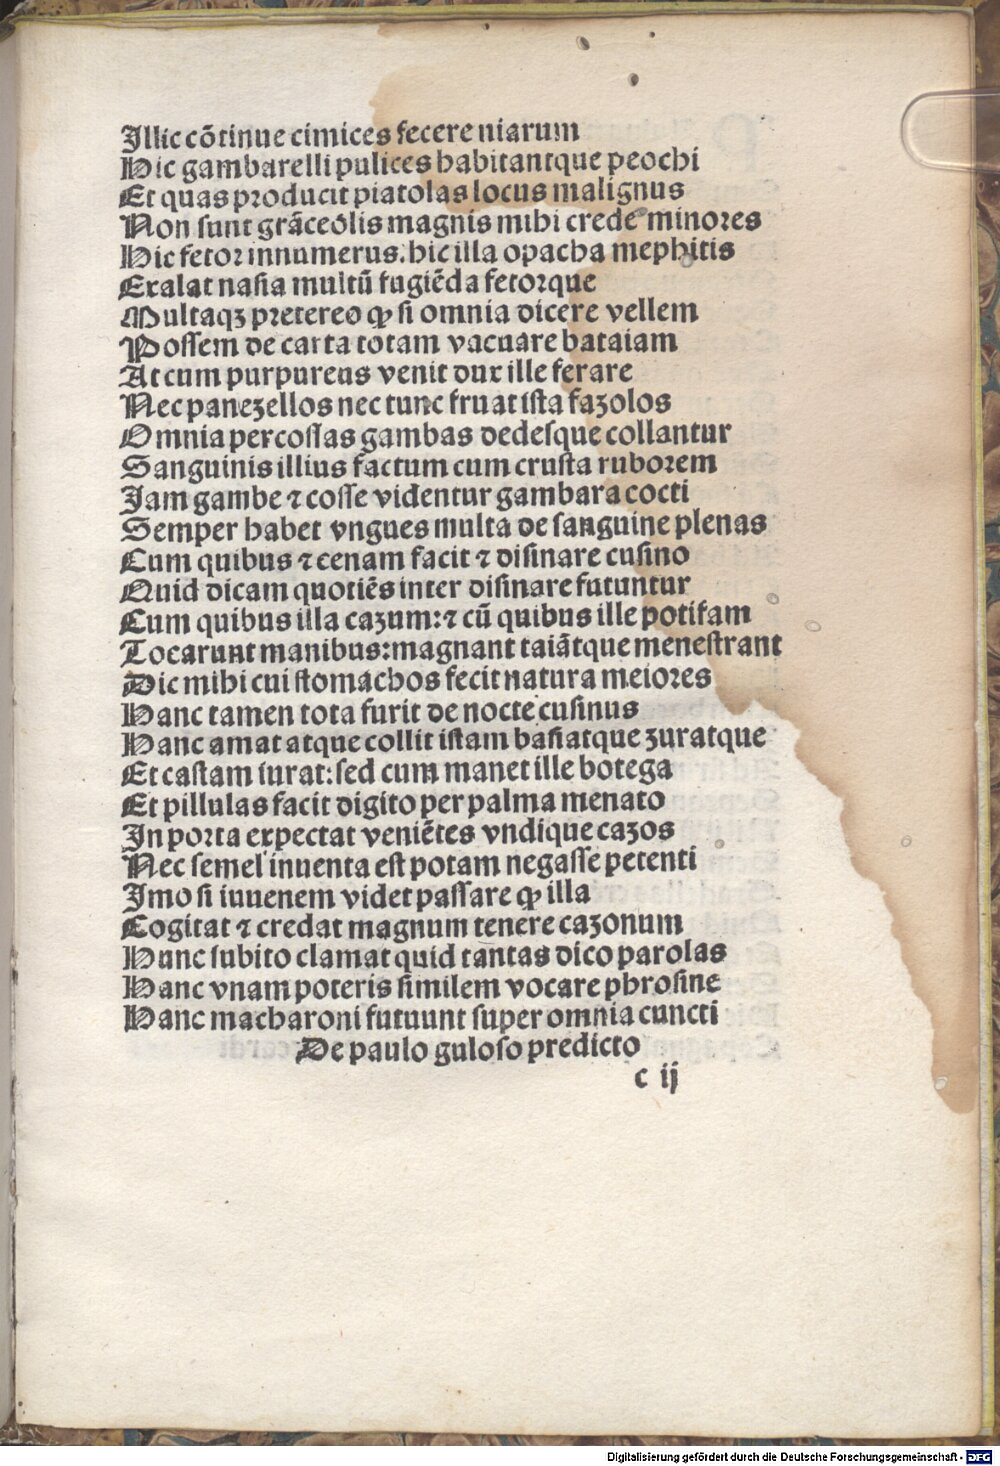 Illic cōtinue cimices fecere niarum
Hic gambarelli pulices habitantque peochi
Et quas producit piatolas locus malignus
Non sunt grāceolis magnis mihi crede minores
Hic fetor innumerus. hic illa opacha mephitis
Exalat nasia multū fugiēda fetorque
Multaqꝫ pretereo ꝙ si omnia dicere vellem
Possem de carta totam vacuare bataiam
At cum purpureus venit dux ille ferare
Nec panezellos nec tunc fruat ista fazolos
Omnia per cossas gambas dedesque collantur
Sanguinis illius factum cum crusta ruborem
Jam gambe ⁊ cosse videntur gambara cocti
Semper habet vngues multa de sanguine plenas
Cum quibus ⁊ cenam facit ⁊ disinare cusino
Quid dicam quotiēs inter disinare futuntur
Cum quibus illa cazum: ⁊ cū quibus ille potifam
Tocarunt manibus: magnant taiātque menestrant
Dic mihi cui stomachos fecit natura meiores
Hanc tamen tota furit de nocte cusinus
Hanc amat atque collit istam basiatque zuratque
Et castam iurat: sed cum manet ille botega
Et pillulas facit digito per palma menato
In porta expectat veniētes vndique cazos
Nec semel inuenta est potam negasse petenti
Imo si iuuenem videt passare ꝙ illa
Cogitat ⁊ credat magnum tenere cazonum
Hunc subito clamat quid tantas dico parolas
Hanc vnam poteris similem vocare phrosine
Hanc macharoni futuunt super omnia cuncti
De paulo guloso predicto
c ij
Digitalisierung gefördert durch die Deutsche Forschungsgemeinschaft - DFG